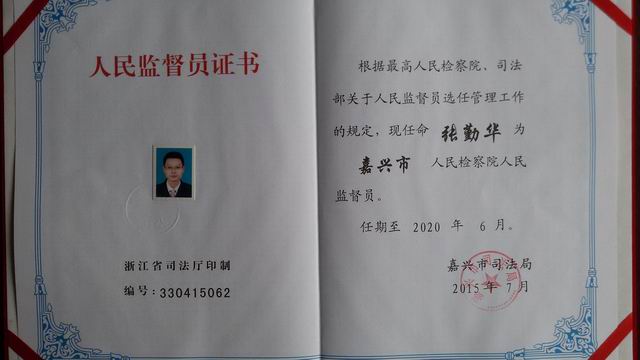 人民监督员证书
浙江省司法厅印制
编号:330415062
根据最高人民检察院、司法
部关于人民监督员选任管理工作
的规定，现任命 张勤华 为
嘉兴市 人民检察院人民
监督员。
任期至 2020 年 6 月。
嘉兴市司法局
2015年7月